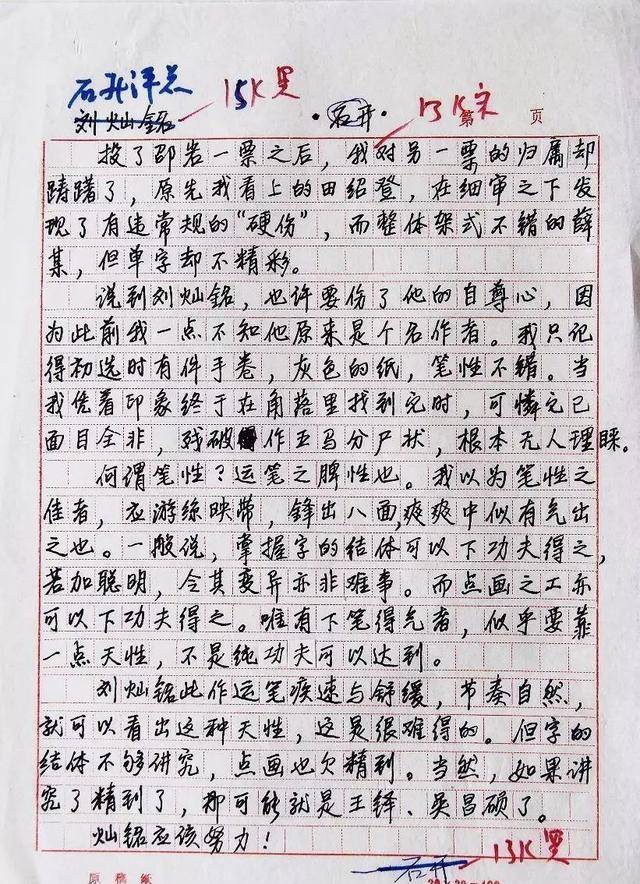 石开评点
15K黑
刘灿铭
·石开·
13K宋
第 页
投了邵岩一票之后，我对另一票的归属却
踌躇了，原先我看上的田绍登，在细审之下发
现了有违常规的“硬伤”，而整体架式不错的薛
某，但单字却不精彩。
说到刘灿铭，也许要伤了他的自尊心，因
为此前我一点不知他原来是个名作者。我只记
得初选时有件手卷，灰色的纸，笔性不错。当
我凭着印象终于在角落里找到它时，可憐它已
面目全非，残破作五马分尸状，根本无人理睬。
何谓笔性？运笔之脾性也。我以为笔性之
佳者，应游丝映带，锋出八面，爽爽中似有气出
之也。一般说，掌握字的结体可以下功夫得之，
若加聪明，令其变异亦非难事。而点画之工亦
可以下功夫得之。唯有下笔得气者，似乎要靠
一点天性，不是纯功夫可以达到。
刘灿铭此作运笔疾速与舒缓，节奏自然，
就可以看出这种天性，这是很难得的。但字的
结体不够讲究，点画也欠精到。当然，如果讲
究了精到了，那可能就是王铎、吴昌硕了。
灿铭应该努力！
石开
13K黑
原稿纸
20×20=400